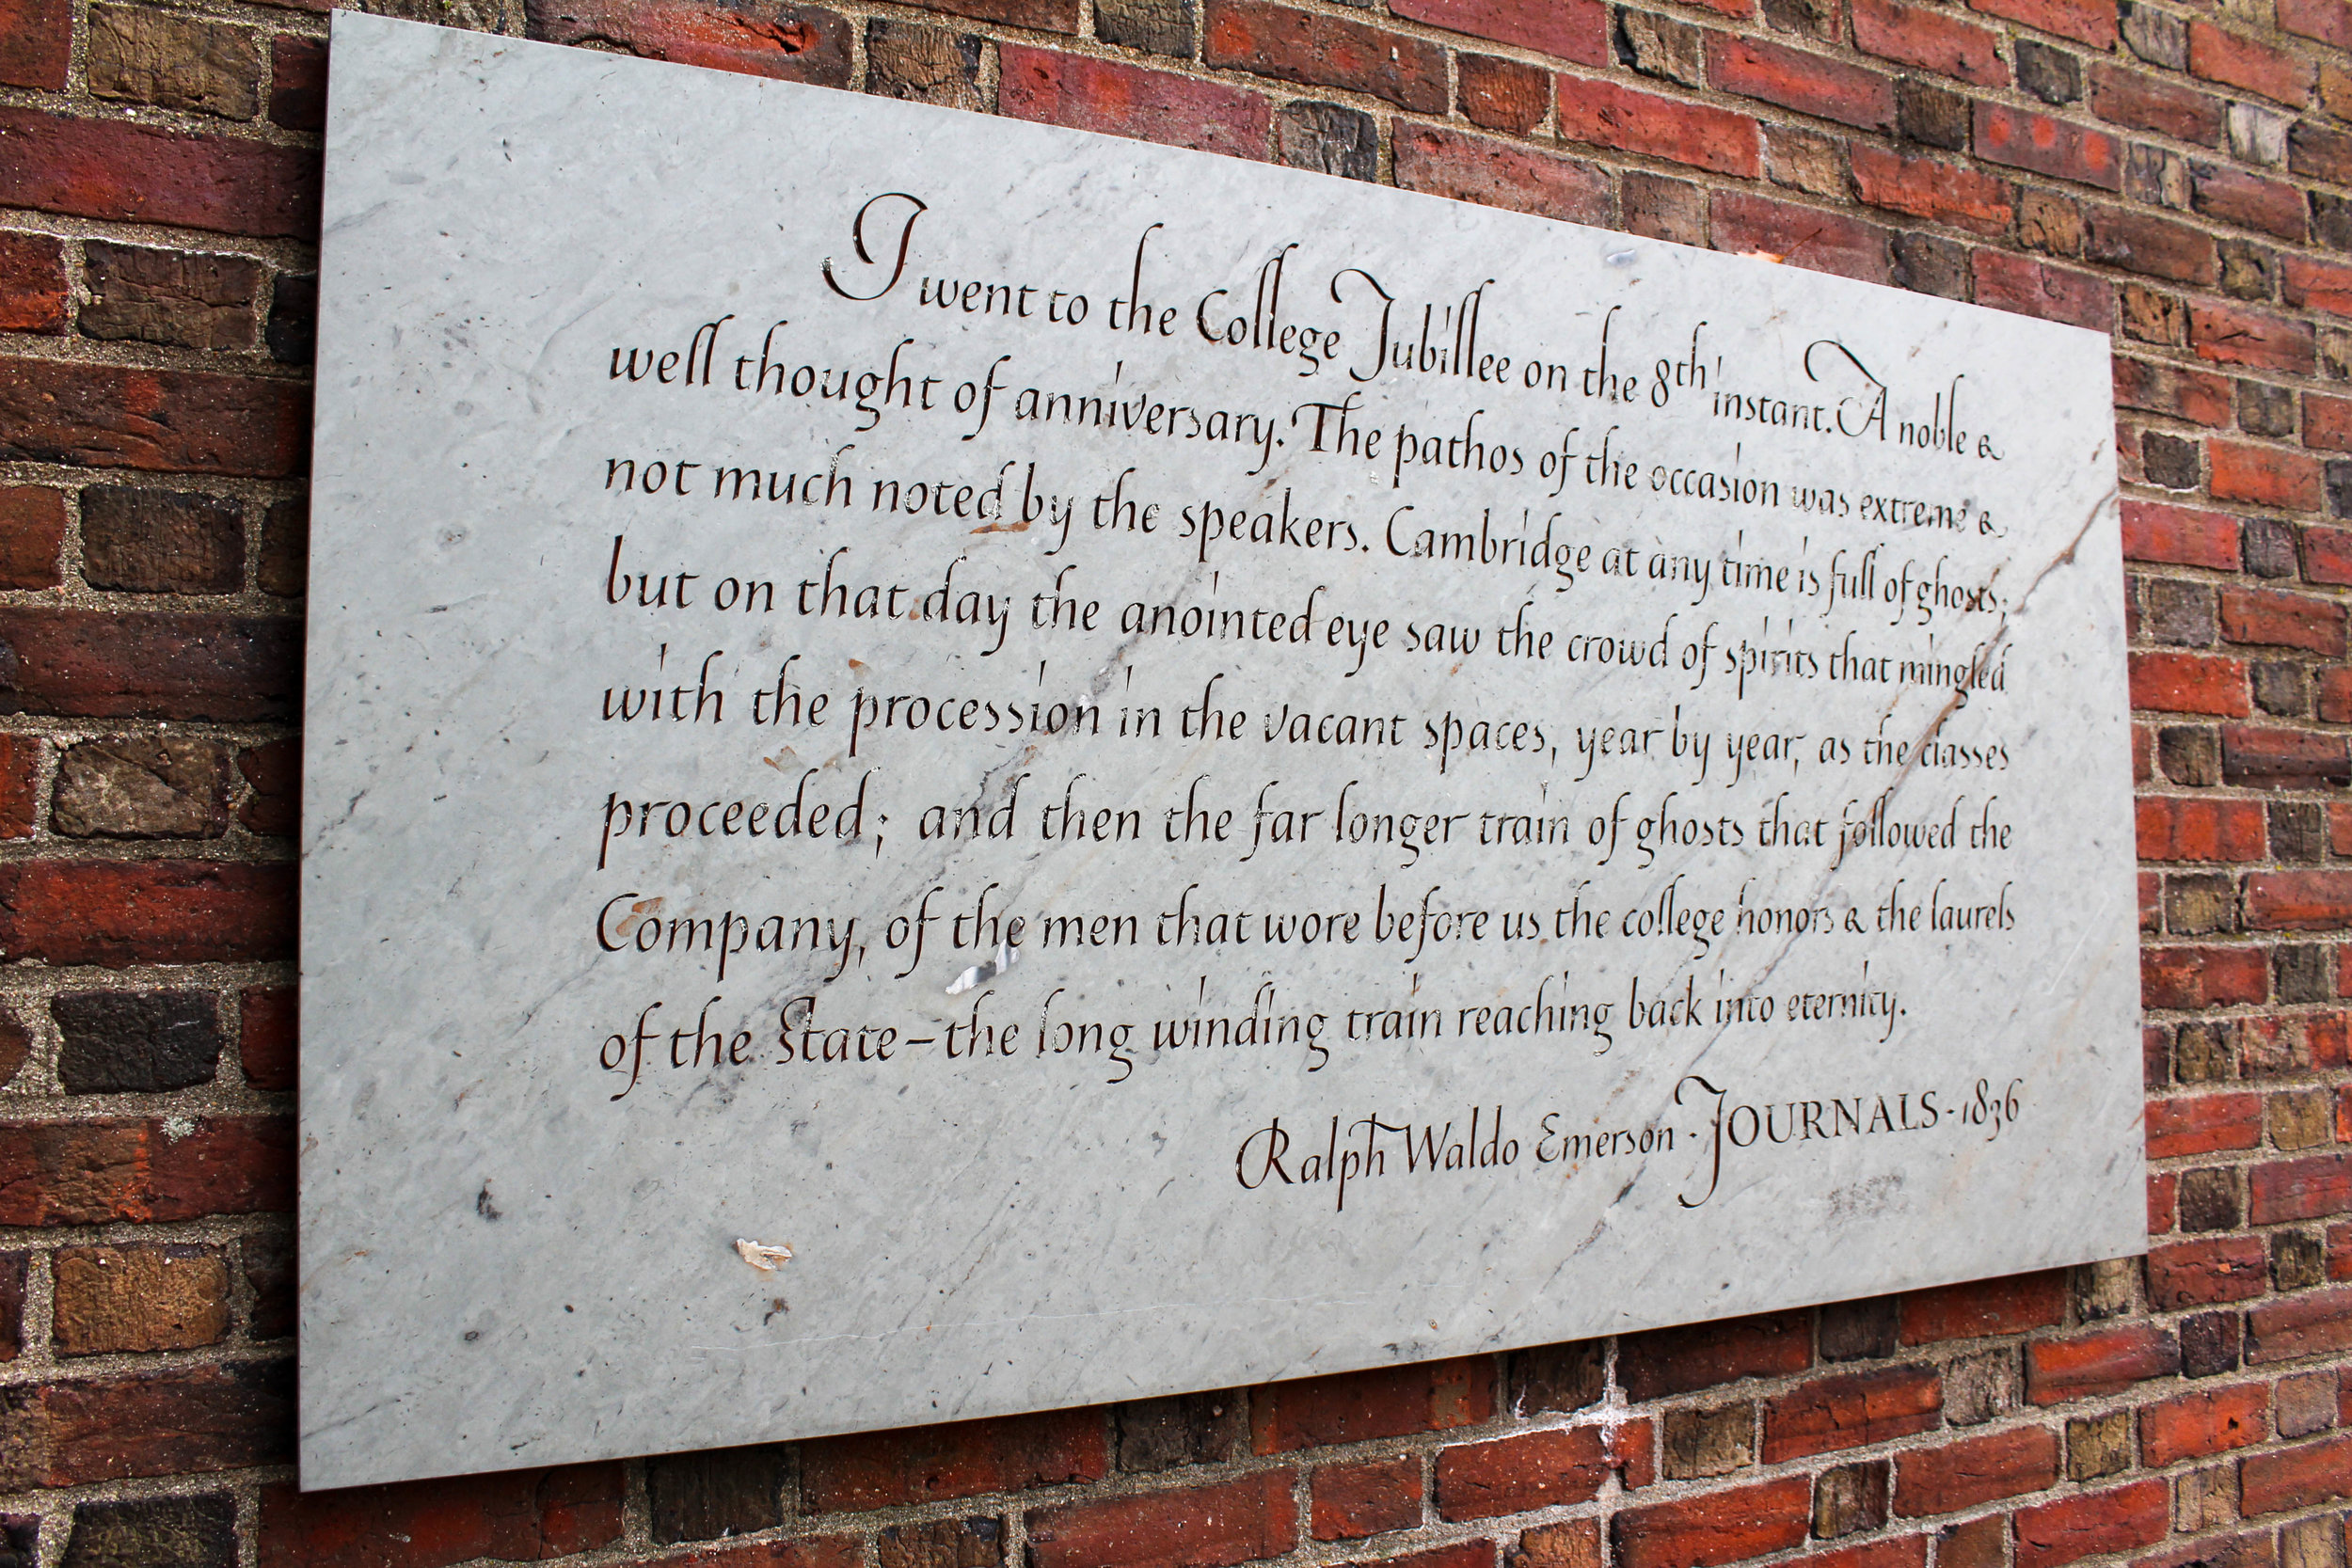 I went to the College Jubillee on the 8th instant. A noble &
well thought of anniversary. The pathos of the occasion was extreme &
not much noted by the speakers. Cambridge at any time is full of ghosts;
but on that day the anointed eye saw the crowd of spirits that mingled
with the procession in the vacant spaces, year by year, as the classes
proceeded; and then the far longer train of ghosts that followed the
Company, of the men that wore before us the college honors & the laurels
of the State – the long winding train reaching back into eternity.
Ralph Waldo Emerson · JOURNALS · 1836